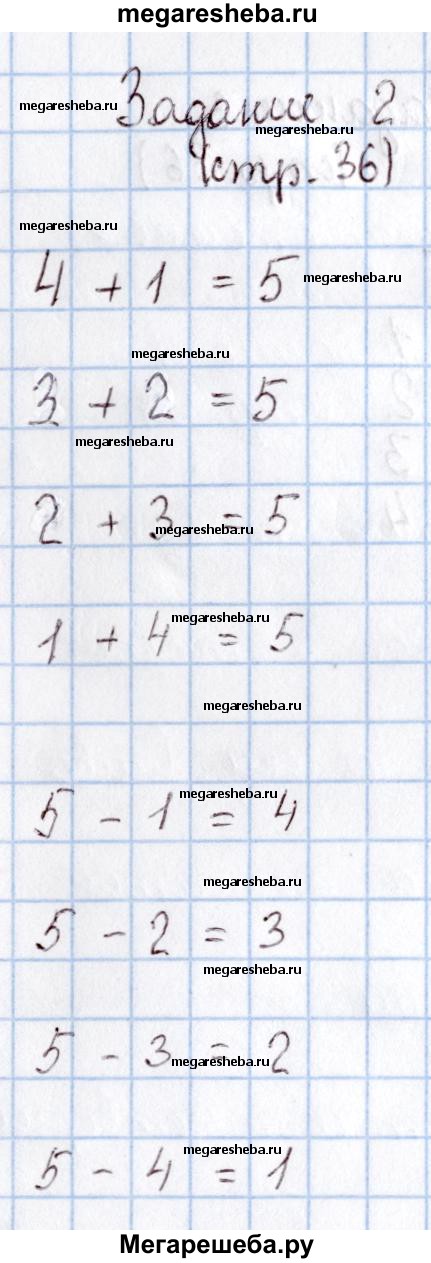 megaresheba.ru
megaresheba.ru
Задание 2
megaresheba.ru
(стр. 36)
megaresheba.ru
4 + 1 = 5
megaresheba.ru
megaresheba.ru
3 + 2 = 5
megaresheba.ru
2 + 3 = 5
megaresheba.ru
megaresheba.ru
1 + 4 = 5
megaresheba.ru
megaresheba.ru
5 - 1 = 4
megaresheba.ru
5 - 2 = 3
megaresheba.ru
5 - 3 = 2
megaresheba.ru
megaresheba.ru
5 - 4 = 1
Мегарешеба.ру